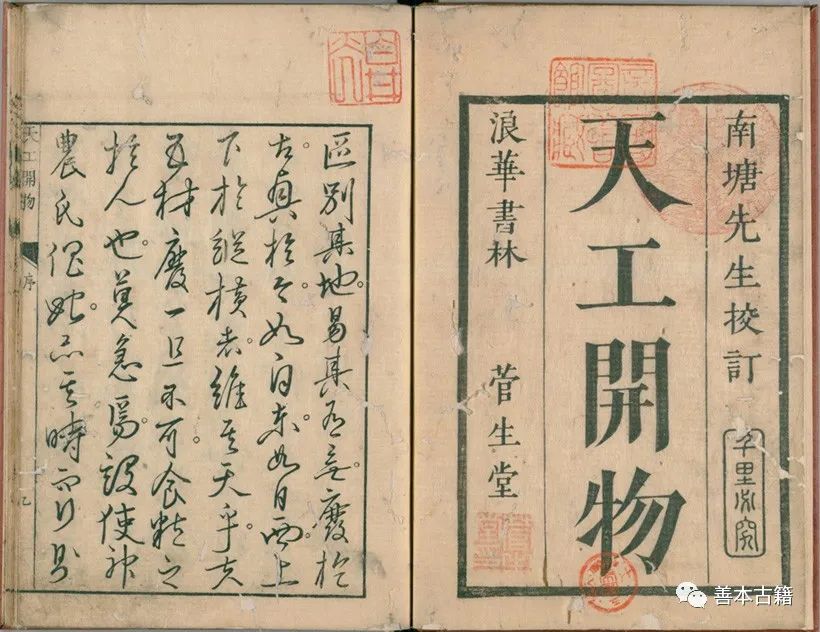 南塘先生校訂
千里必究
天工開物
浪華書林 菅生堂
區別其地。易其有無。廢於
古具於今。如自東。如自西。上
下於縱橫者。維其天乎。夫
五材廢一且不可。食粒之
於人也。莫急焉。設使神
農氏 其時而行則
天工開物 序
善本古籍